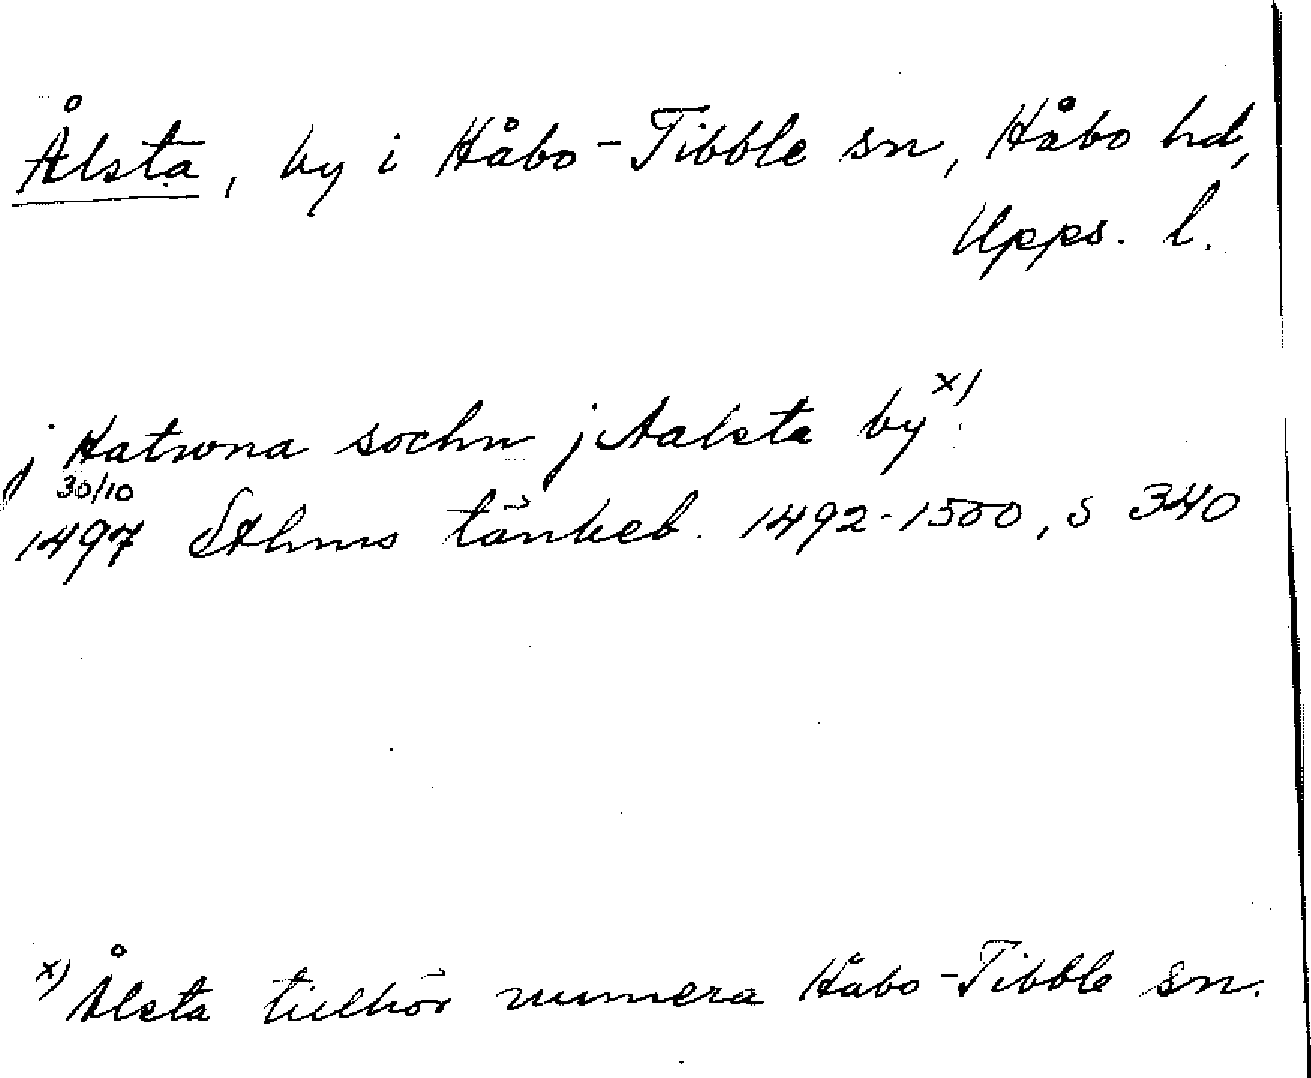 Ålsta, by i Håbo-Tibble sn, Håbo hd,
Upps. l.
j Katrona sochn j Aalsta by x)
30/10
1497 Sthms tänkeb. 1492-1500, s 340
x) Ålsta tillhör numera Håbo-Tibble sn.